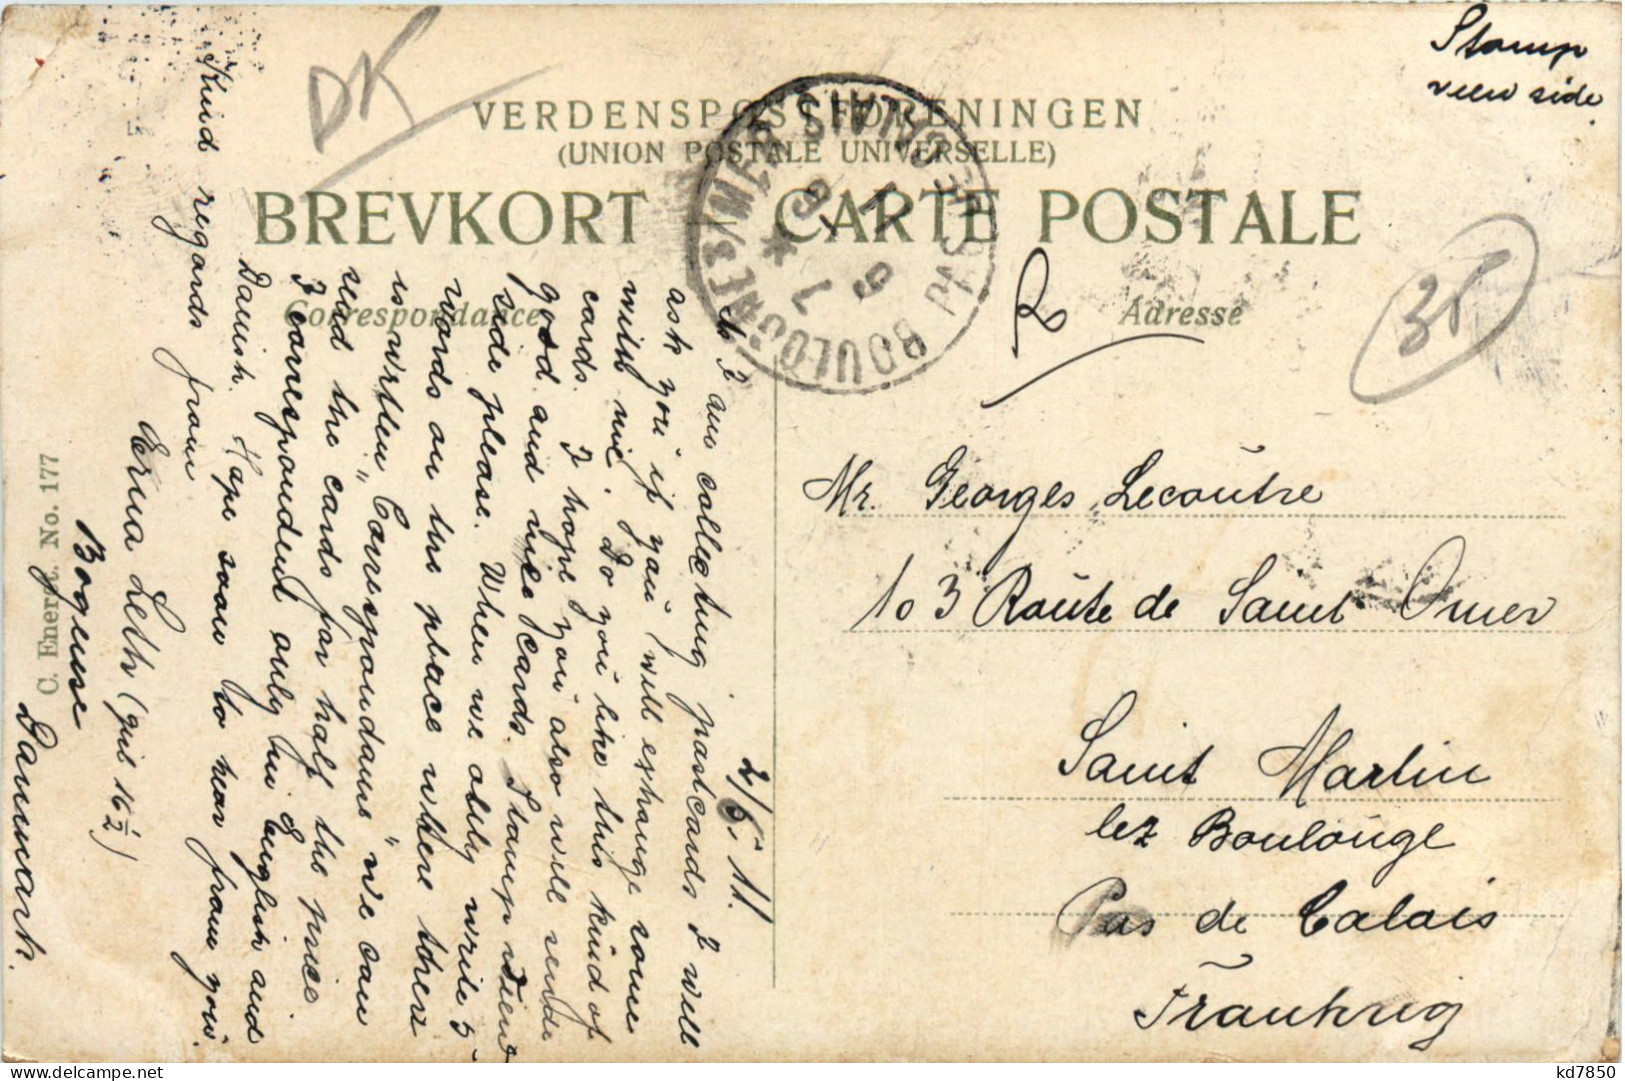 Stamp
view side.
DK
VERDENSPOSTFORENINGEN
(UNION POSTALE UNIVERSELLE)
BREVKORT — CARTE POSTALE
Correspondance
Adresse
35
BOULOGNE S/MER
PAS DE CALAIS
2/6. 11.
As I am collecting postcards I will
ask you if you will exhange some
with me. Do you like this kind of
cards. I hope you also will sende
good and nice cards. Stamp view
side please. When we only write 5
words on the place where there
is written "Correspondance" we can
send the cards for half the price
I correspondent only in English and
Danish. Hope soon to hear from you.
Kind regards from
Erna Leth (girl 16½)
Bogense
Danmark.
C. Eneret. No. 177
Mr. Georges Lecoutre
103 Route de Saint Omer
Saint Martin
lez Boulouge
Pas de Calais
Frankrig
kd7850